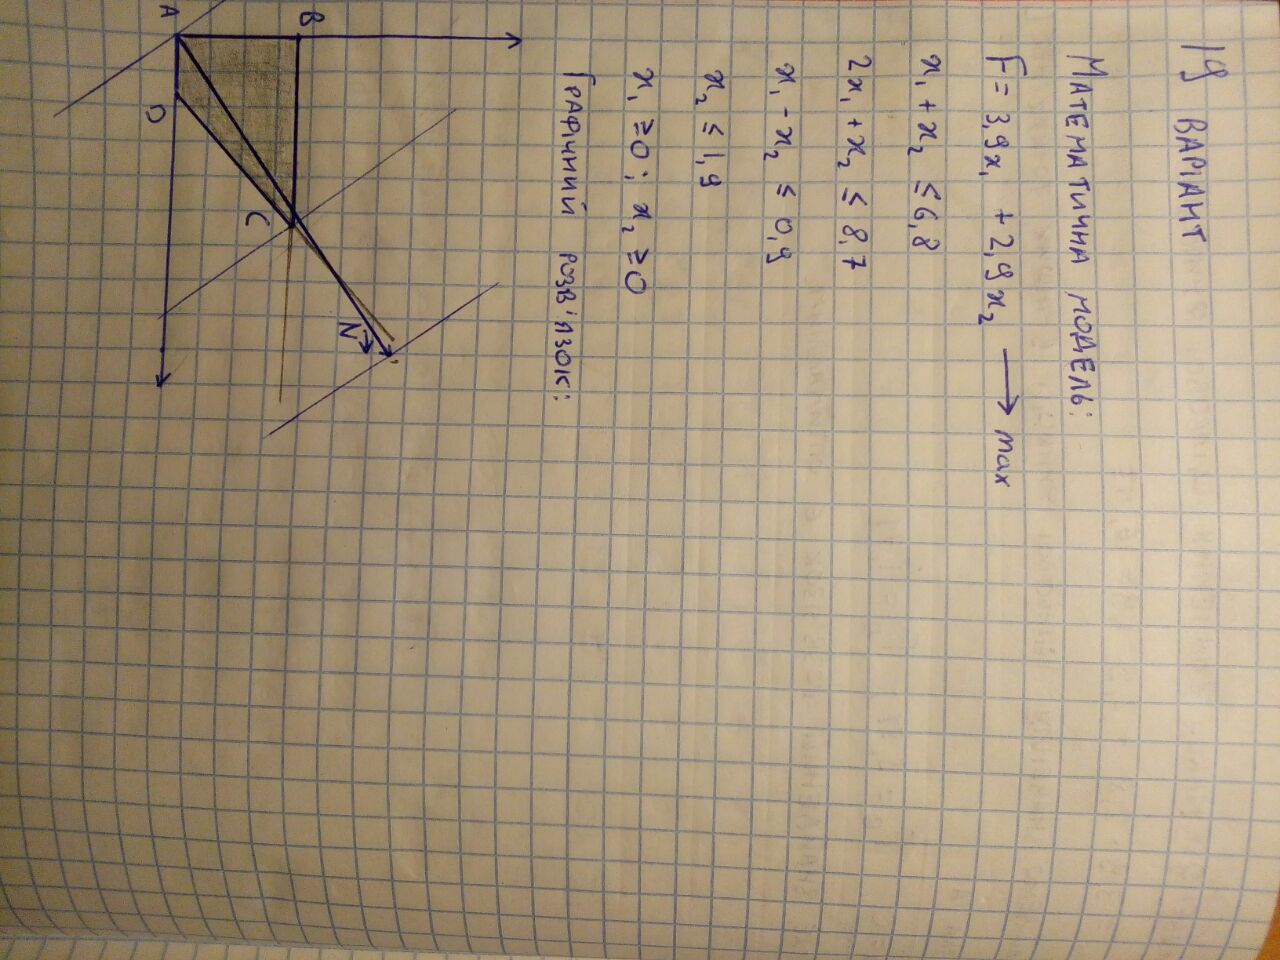 19 ВАРІАНТ
МАТЕМАТИЧНА МОДЕЛЬ:
F = 3,9x₁ + 2,9x₂ → max
x₁ + x₂ ≤ 6,8
2x₁ + x₂ ≤ 8,7
x₁ - x₂ ≤ 0,9
x₂ ≤ 1,9
x₁ ≥ 0; x₂ ≥ 0
ГРАФІЧНИЙ РОЗВ'ЯЗОК:
B
N
A
C
D